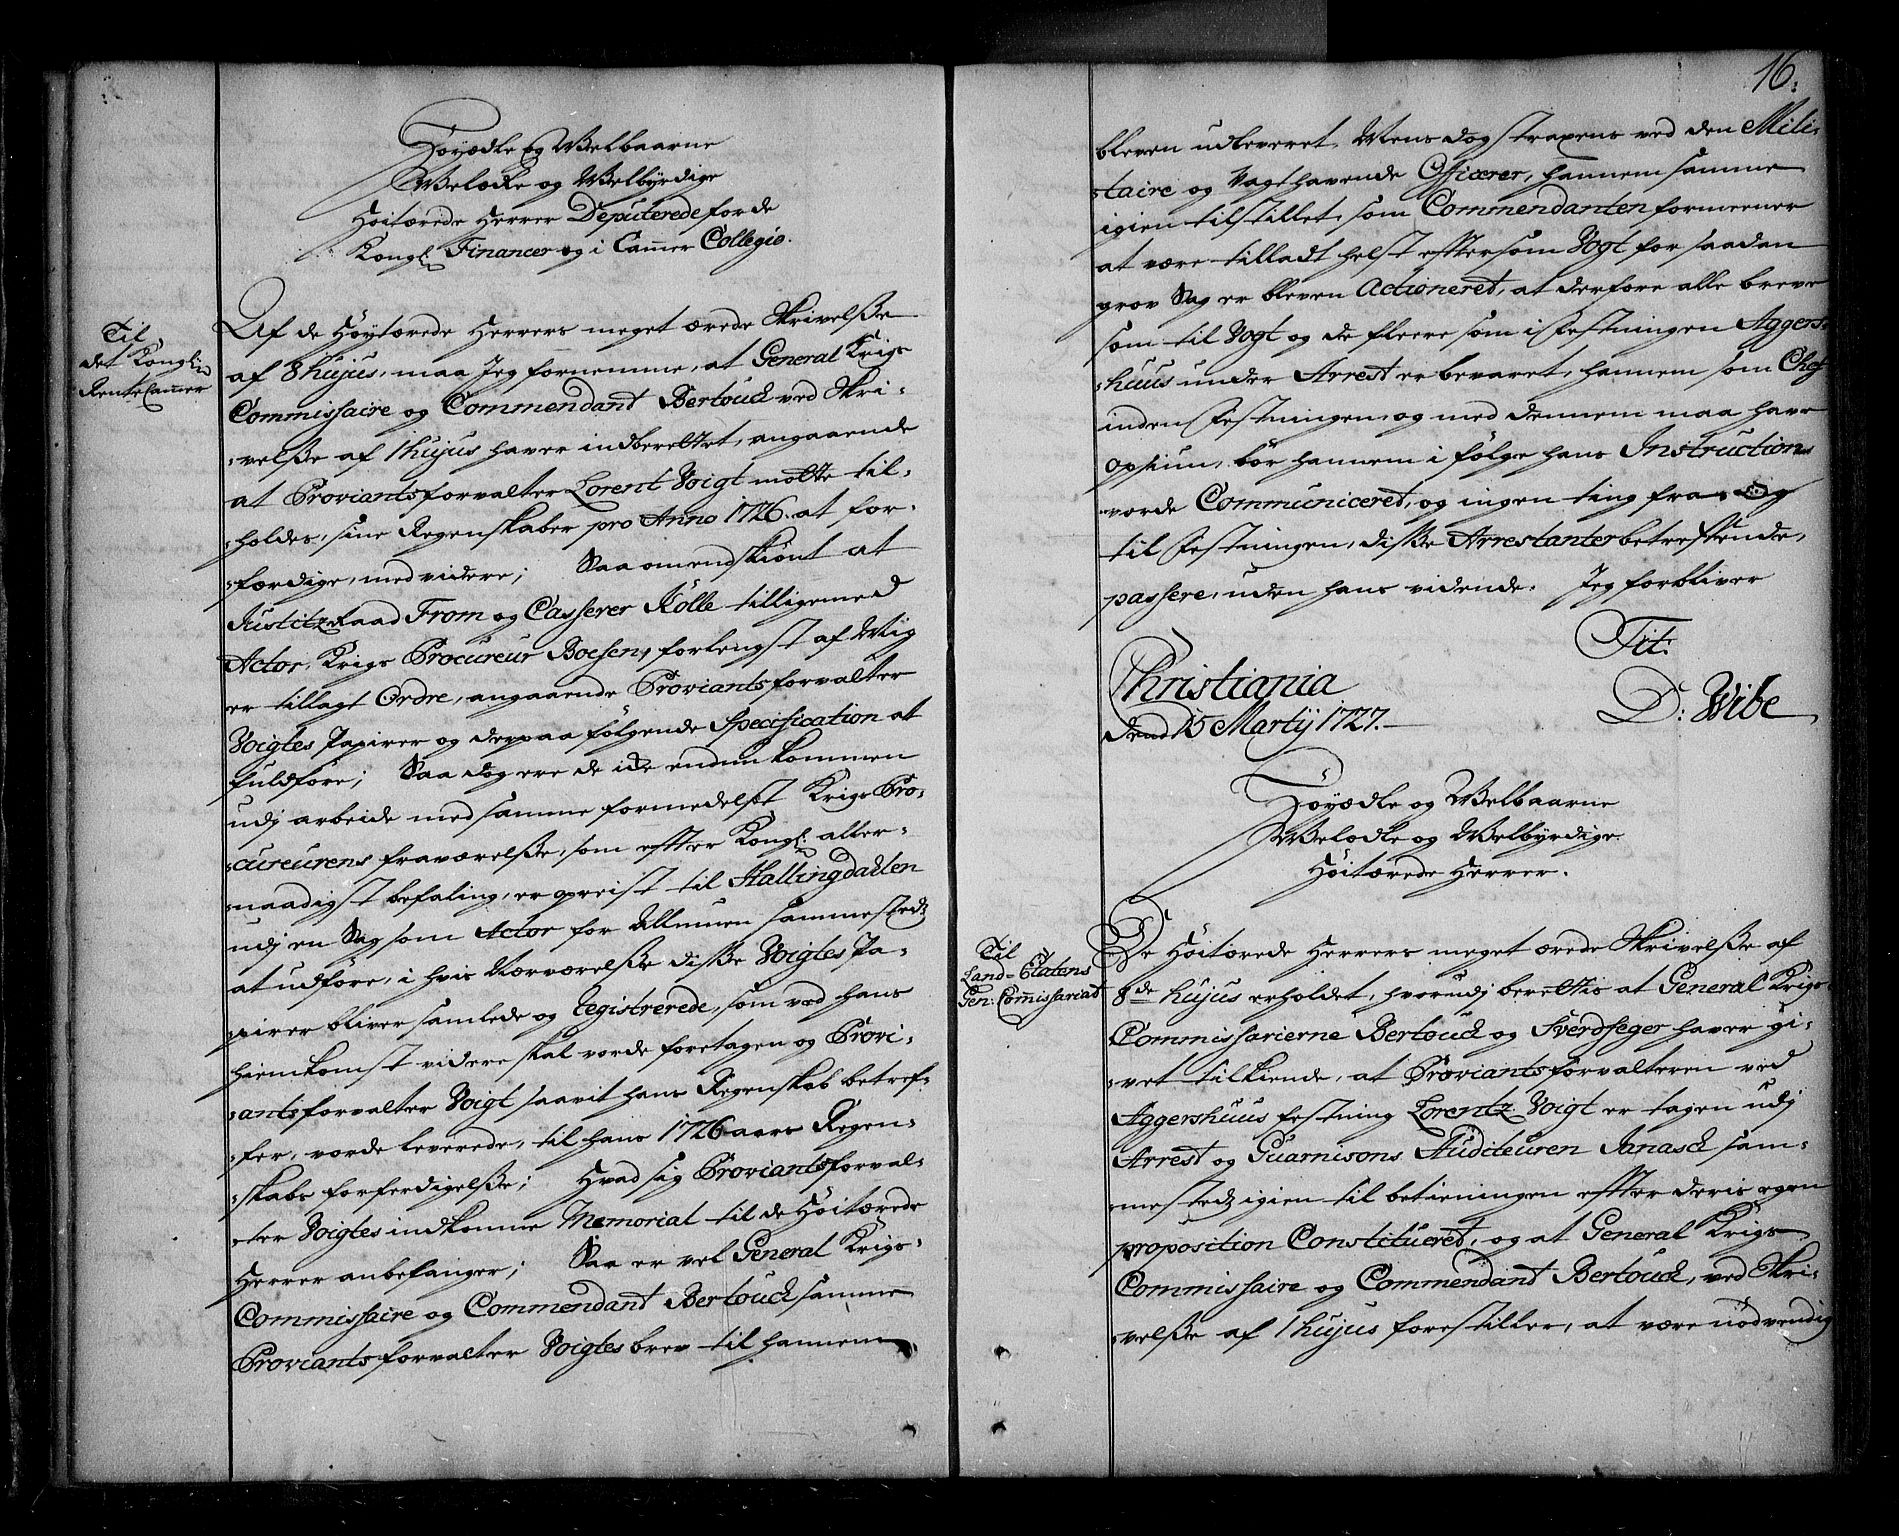 Høyædle og Welbaarne
Welædle og Welbyrdige
Høitærede Herrer Deputerede for de
Kongl: Financer og i Cammer Collegio.
Til
det Kongl:
Rente Cammer
Af de Høytærede Herrers meget ærede Skrivelße
af 8 hujus, maa Jeg fornemme, at General Krigs
Commissaire og Commendant Bertouch ved Skri-
-velße af 1 hujus haver indberettet, angaaende
at Proviantsforvalter Lorent Voigt motte til-
-holdes, sine Regenskaber pro Anno 1726. at for-
-færdige, med videre; Saa omendskiönt at
Justitz Raad From og Casserer Kölle tilligemed
Actor, Krigs Procureur Boesen, forlengst af Mig
er tillagt Ordre, angaaende Proviantsforvalter
Voigtes Papirer og derpaa fölgende Specification at
fuldföre; Saa dog ere de ide endnu kommen
udj arbeide med samme formedelst Krigs Pro-
-cureurens fraværelße, som effter Kongl: aller-
-naadigst befaling, er opreist til Hallingdahlen
udj en Sag som Actor for Allmuen sammestedz
at udföre, i hvis Nærværelße diße Voigtes Pa-
-pirer bliver samlede og Registrerede, som ved hans
hiemkomst videre skal vorde foretagen og Provi-
-antsforvalter Voigt saavit hans Regenskab betref-
-fer, vorde leverede, til hans 1726 aars Regen-
-skabs forferdigelße; Hvad sig Proviantsforval-
-ter Voigtes indkomne Memorial til de Höitærede
Herrer anbelanger; Saa er vel General Krigs-
Commissaire og Commendant Bertouch samme
Proviantsforvalter Voigtes brev til hannem
16.
bleven udleveret, Mens dog straxens ved den Mili-
-taire og Vagthavende Officerer, hannem samme
igien tilstillet, som Commendanten formeener
at være tilladt helst efftersom Vogt for saadan
grov Sag er bleven Actioneret, at derfore alle breve
som til Vogt og de fleere som i Festningen Aggers-
-huus under Arrest er bevaret, hannem som Chef
inden Festningen, og med dennem maa have
opsiun, bör hannem i fölge hans Instruction
vorde Communiceret, og ingen ting fra og
til Festningen, diße Arrestanter betreffende,
passere, uden hans vidende. Jeg forbliver
Tit:
Christiania
den 15 Martij 1727.
D: Wibe
Höyædle og Welbaarne
Welædle og Welbyrdige
Höitærede Herrer.
Til
Land-Etatens
Gen: Commissariat
De Höitærede Herrers meget ærede Skrivelße af
8de hujus erholdet, hvorudj berettis at General Krigs
Commissarierne Bertouch og Sverdfeger haver gi-
-vet tilkiende, at Proviantsforvalteren ved
Aggershuus festning Lorentz Voigt er tagen udj
Arrest og Guarnisons Auditeuren Janasch sam-
-mestedz igien til betieningen effter deris egen
proposition Constitueret, og at General Krigs
Commissaire og Commendant Bertouch, ved Skri-
-velße af 1 hujus forestiller, at være nödvendig